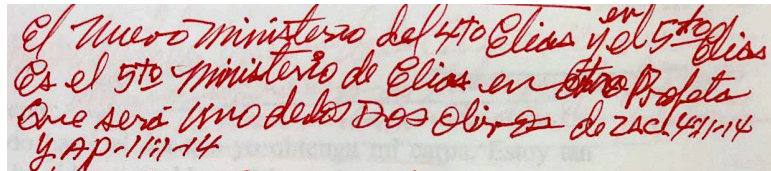 El Nuevo Ministerio del 4to Elias y en el 5to Elias
Es el 5to Ministerio de Elias en otro Profeta
Que será Uno de los Dos Olivos de ZAC. 4:1-14
y AP. 11:1-14
yo obtenga mi carpa. Estoy tan